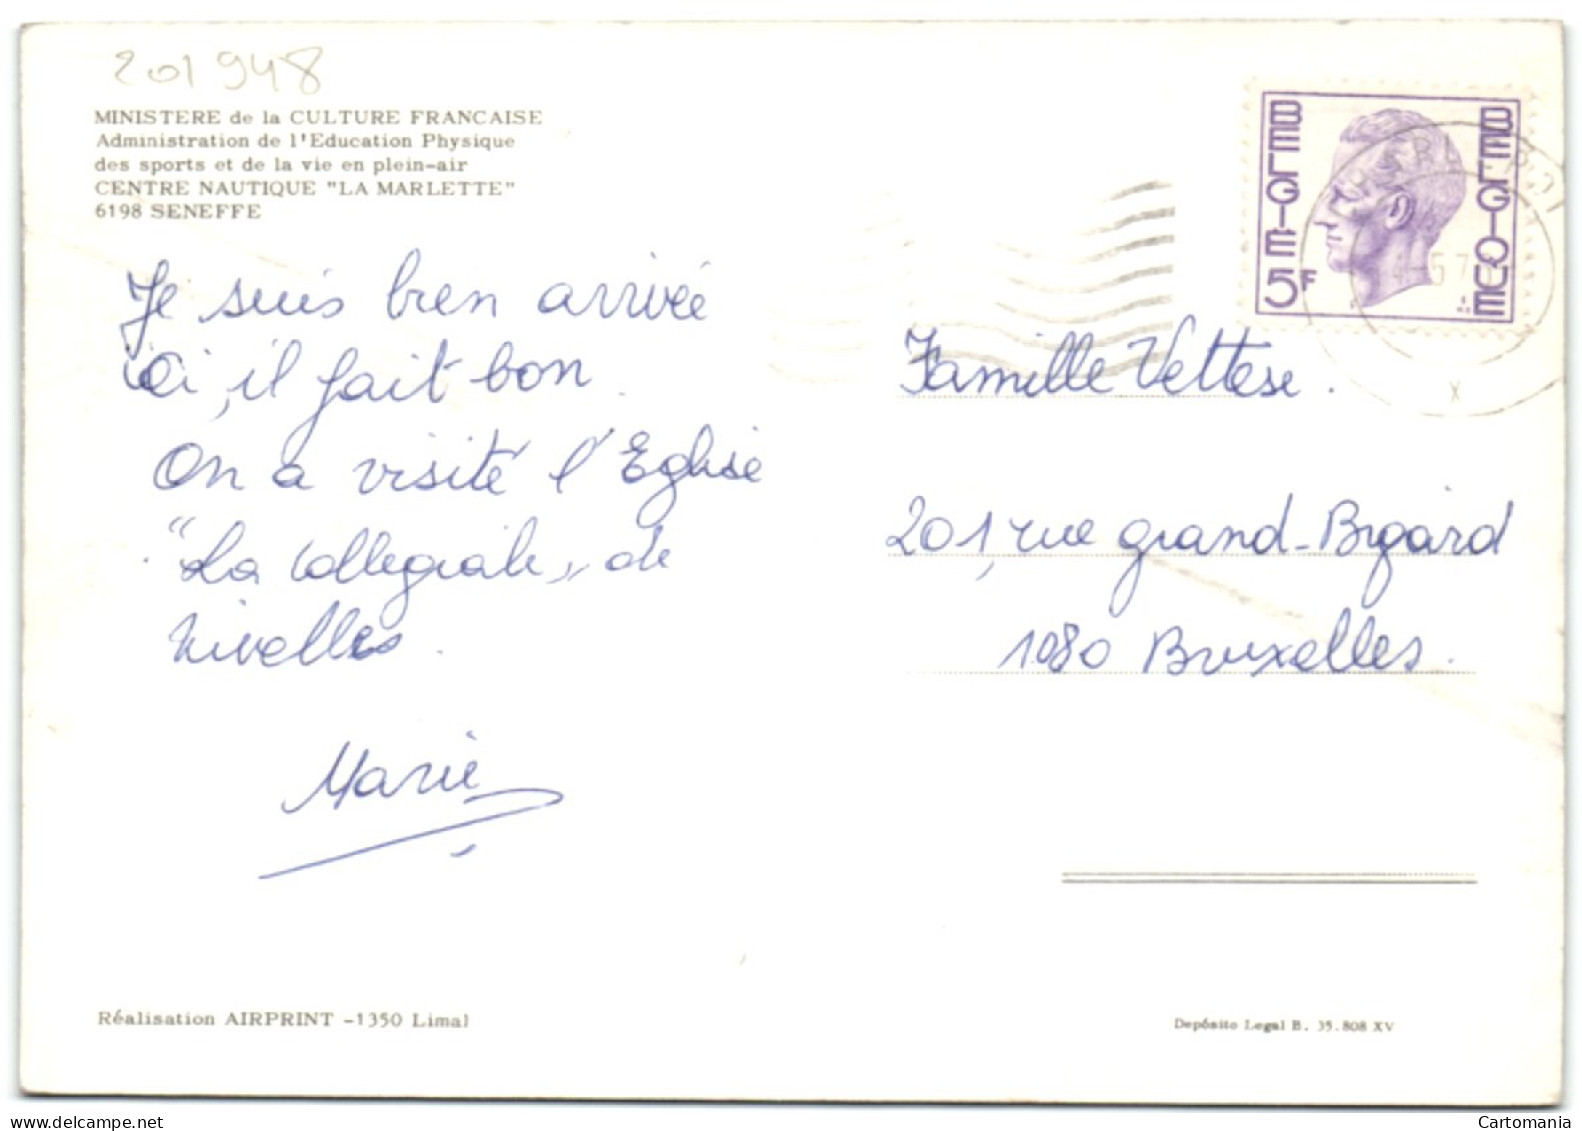 201 948
MINISTERE de la CULTURE FRANCAISE
Administration de l'Education Physique
des sports et de la vie en plein-air
CENTRE NAUTIQUE "LA MARLETTE"
6198 SENEFFE
Je suis bien arrivée
ici, il fait bon.
On a visité l'Eglise
"La Collegiale" de
Nivelles.
Marie
BELGIE 5F
BELGIQUE
Famille Vettese.
201, rue grand-Bigard
1080 Bruxelles.
Réalisation AIRPRINT -1350 Limal
Depósito Legal B. 35.808 XV
Cartomania